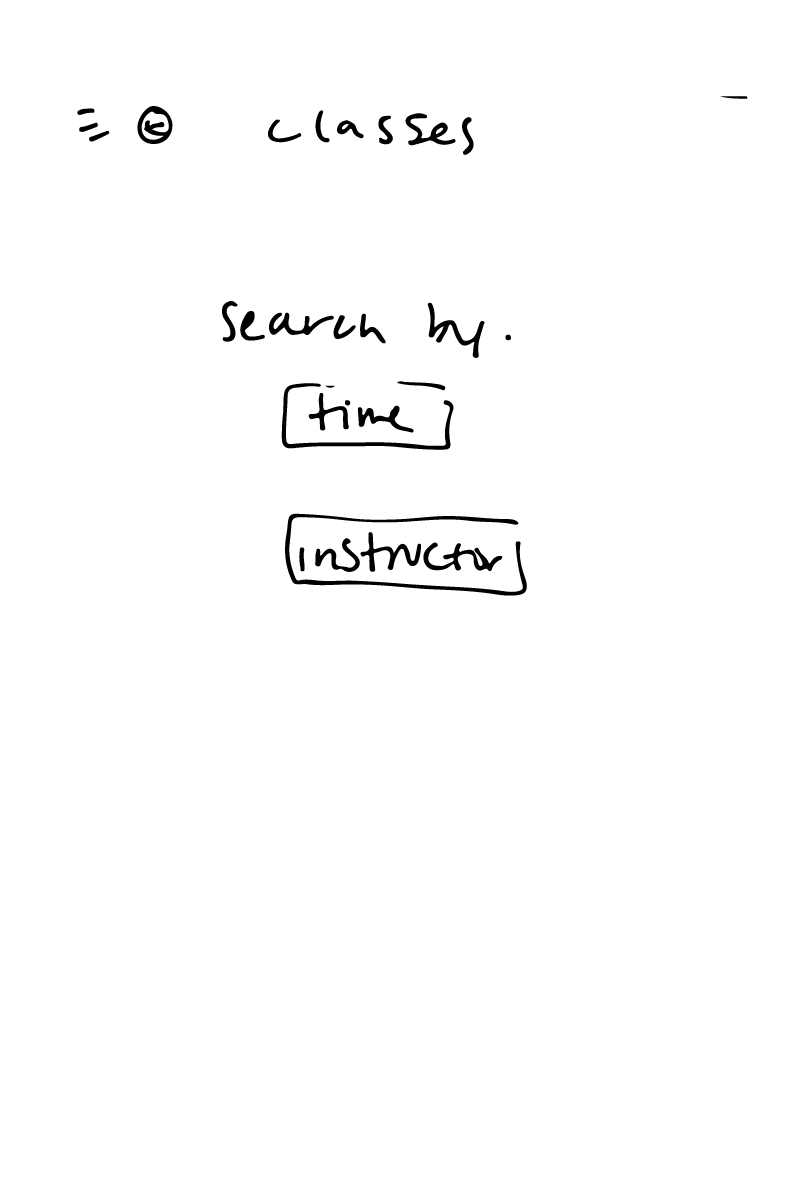 classes
search by.
time
instructor